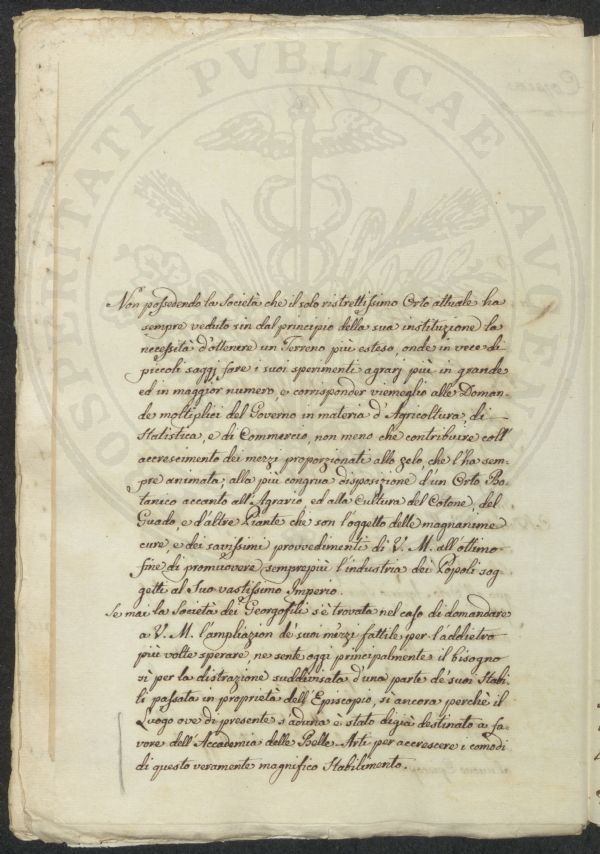 PROSPERITATI PVBLICAE AVGE
Non possedendo la Società che il solo ristrettissimo Orto attuale ha
sempre veduto sin dal principio della sua instituzione la
necessità d'ottenere un Terreno più esteso, onde in vece di
piccoli saggj fare i suoi sperimenti agrarj più in grande
ed in maggior numero, e corrisponder viemeglio alle Doman-
de moltiplici del Governo in materia d'Agricoltura, di
Statistica, e di Commercio, non meno che contribuire coll'
accrescimento dei mezzi proporzionati allo zelo, che l'ha sem-
pre animata, alla più congrua disposizione d'un Orto Bo-
tanico accanto all'Agrario ed alla Cultura del Cotone, del
Guado, e d'altre Piante che son l'oggetto delle magnanime
cure, e dei savissimi provvedimenti di V. M. all'ottimo
fine di promuovere semprepiù l'industria dei Popoli sog-
getti al Suo vastissimo Imperio.
Se mai la Società dei Georgofili s'è trovata nel caso di domandare
a V. M. l'ampliazion de' suoi mezzi fattile per l'addietro
più volte sperare, ne sente oggi principalmente il bisogno
sì per la distrazione suddivisata d'una parte de' suoi Stabi-
li passata in proprietà dell'Episcopio, sì ancora perchè il
Luogo ove di presente s'aduna è stato digià destinato a fa-
vore dell'Accademia delle Belle Arti per accrescere i comodi
di questo veramente magnifico Stabilimento.